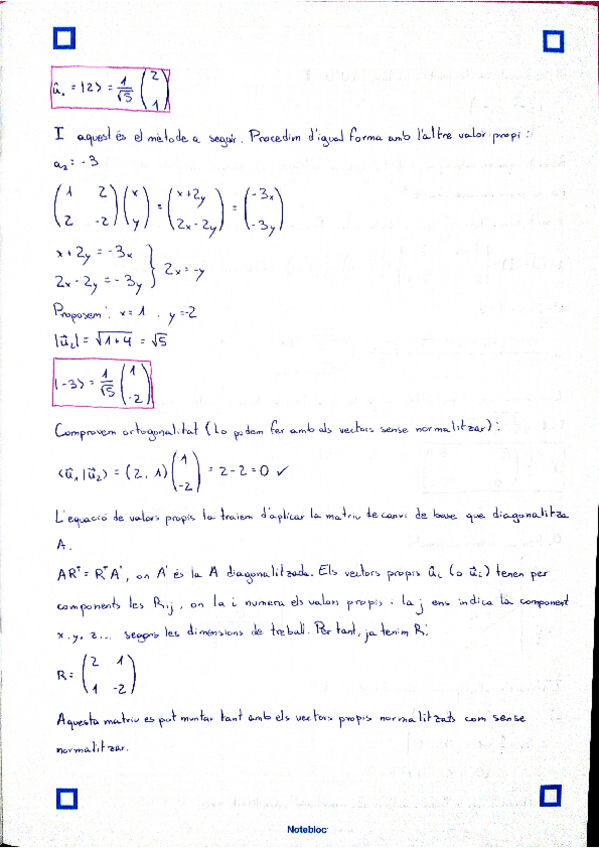 û₁ = |2> = 1/√5 (2 1)
I aquest és el mètode a seguir. Procedim d'igual forma amb l'altre valor propi:
a₂ = -3
(1 2 2 -2) (x y) = (x+2y 2x-2y) = (-3x -3y)
x+2y = -3x
2x-2y = -3y } 2x = -y
Proposem: x=1, y=-2
|ū₂| = √1+4 = √5
|-3> = 1/√5 (1 -2)
Comprovem ortogonalitat (Lo podem fer amb els vectors sense normalitzar):
<ū₁|ū₂> = (2, 1) (1 -2) = 2-2=0 ✓
L'equació de valors propis la traiem d'aplicar la matriu de canvi de base que diagonalitza
A.
AR⁺ = R⁺A', on A' és la A diagonalitzada. Els vectors propis ûᵢ (o ūᵢ) tenen per
components les Rᵢⱼ, on la i numera els valors propis i la j ens indica la component
x, y, z... segons les dimensions de treball. Per tant, ja tenim R:
R = (2 1 1 -2)
Aquesta matriu es pot muntar tant amb els vectors propis normalitzats com sense
normalitzar.
Notebloc